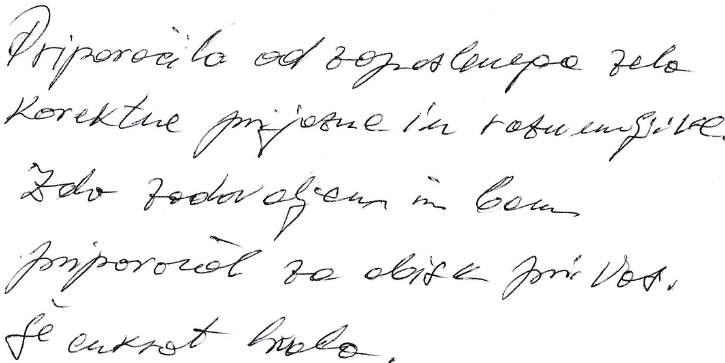 Priporočila od zaposlenega zelo
korektne prijazne in razumljive.
Zelo zadovoljen in bom
priporočal za obisk pri vas.
Še enkrat hvala.